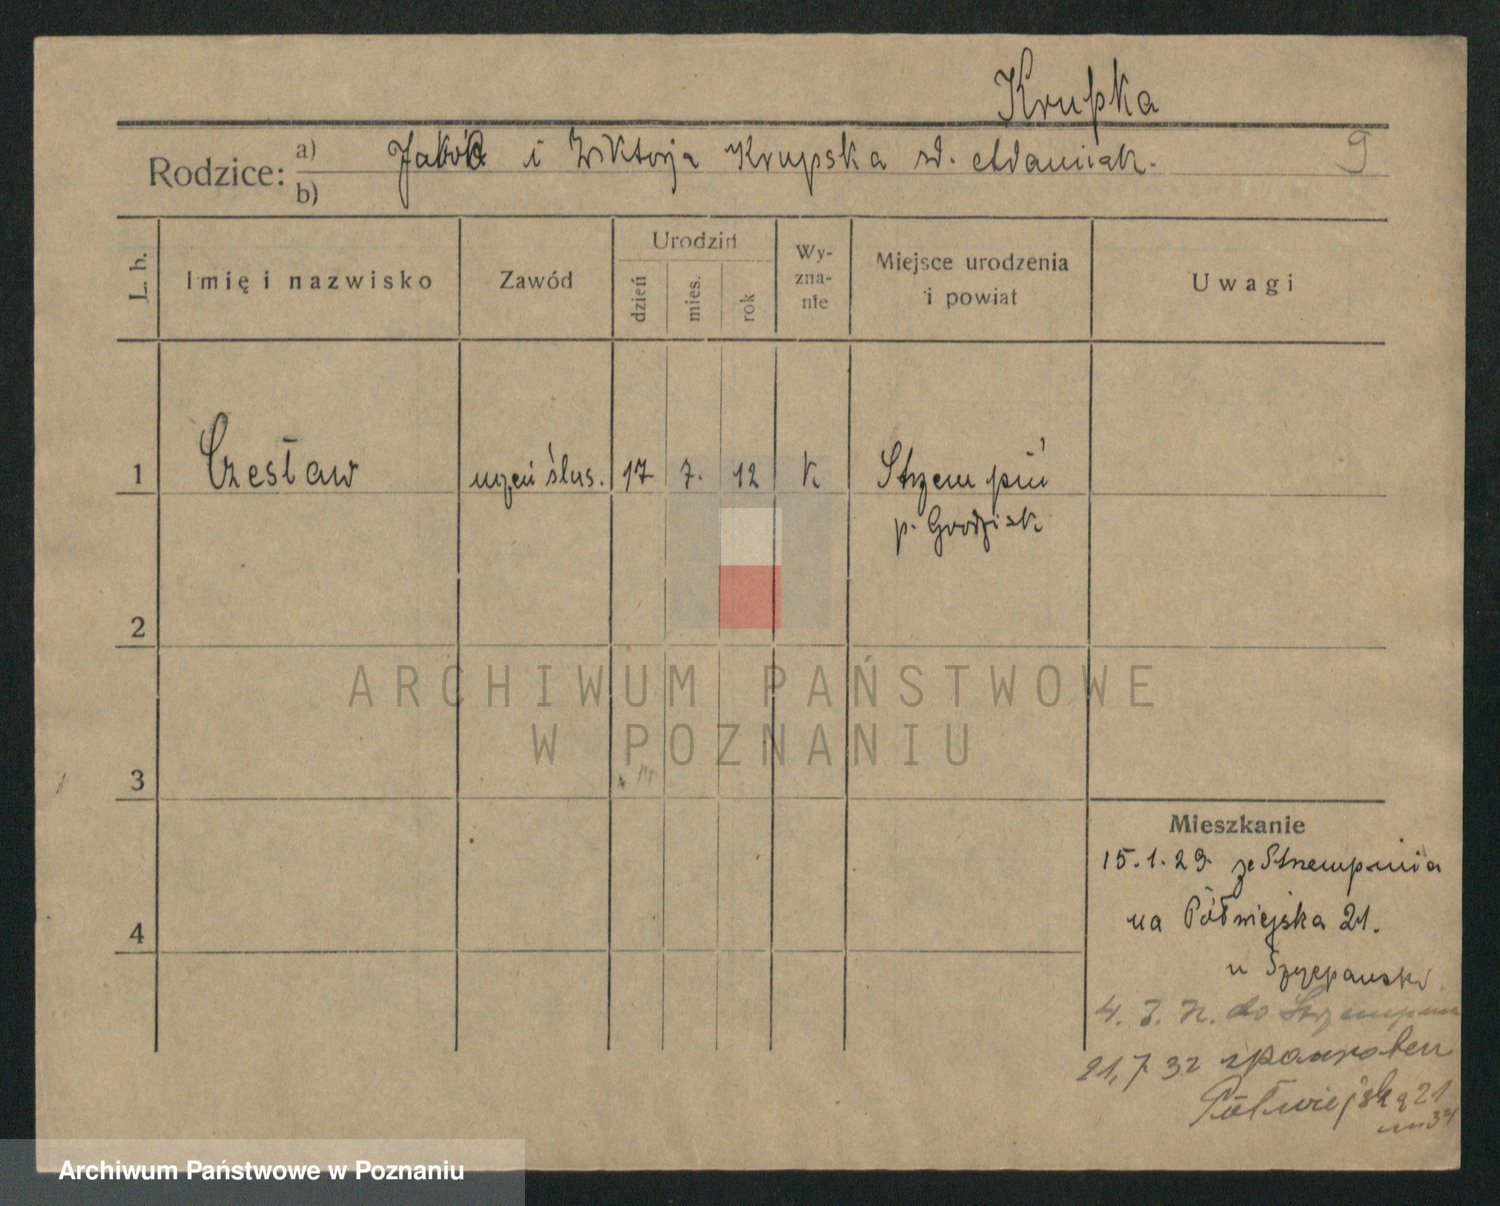 Krupka
Rodzice: a) Jakób i Wiktorja Krupska zd. Adamiak. 9
b)
L. b. Imię i nazwisko Zawód Urodziń dzień mies. rok Wy-zna-nie Miejsce urodzenia i powiat Uwagi
1 Czesław uczeń ślus. 17 7. 12 k Strzempiń
p. Grodzisk
2
ARCHIWUM PAŃSTWOWE
W POZNANIU
3
Mieszkanie
15.1.29. ze Strzempinia
na Półwiejska 21.
4
u Szczepański
4. 3. do Strzempin
21,7 32
Półwiejska 21
Archiwum Państwowe w Poznaniu